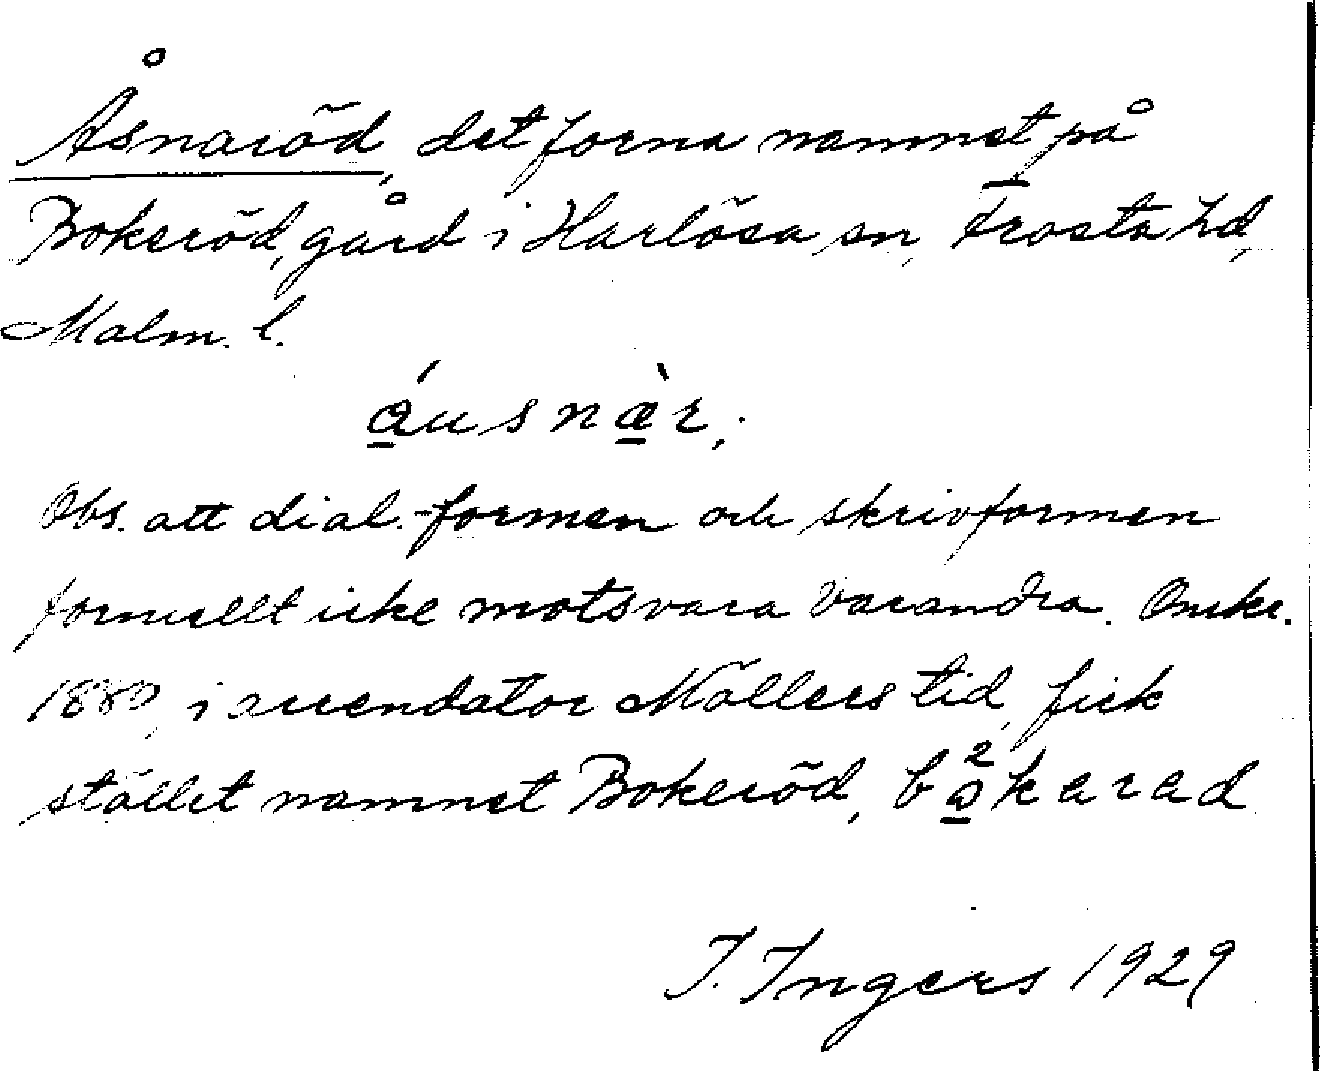 Åsnaröd, det forna namnet på
Bokeröd, gård i Harlösa sn, Frosta hd,
Malm. l.
áusnær̀;
Obs. att dial.-formen och skrivformen
formellt icke motsvara varandra. Omkr.
1880, i arrendator Möllers tid, fick
stället namnet Bokeröd, bo²karad
I. Ingers 1929